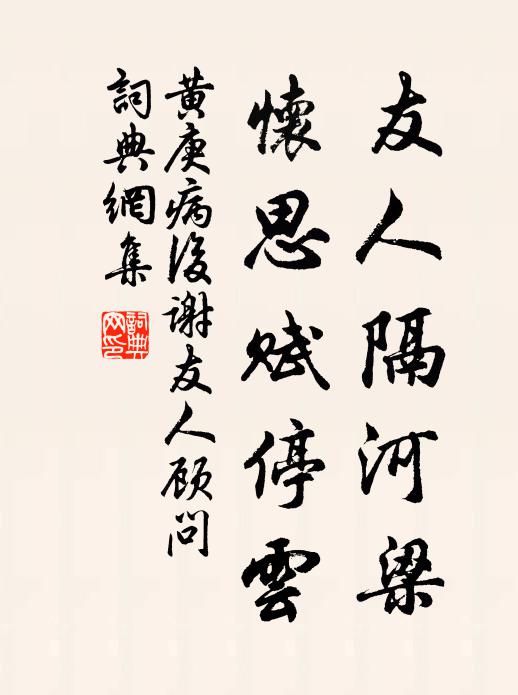 友人隔河梁
懷思賦停雲
黄庚病後謝友人顾問
詞典網集
詞典网印